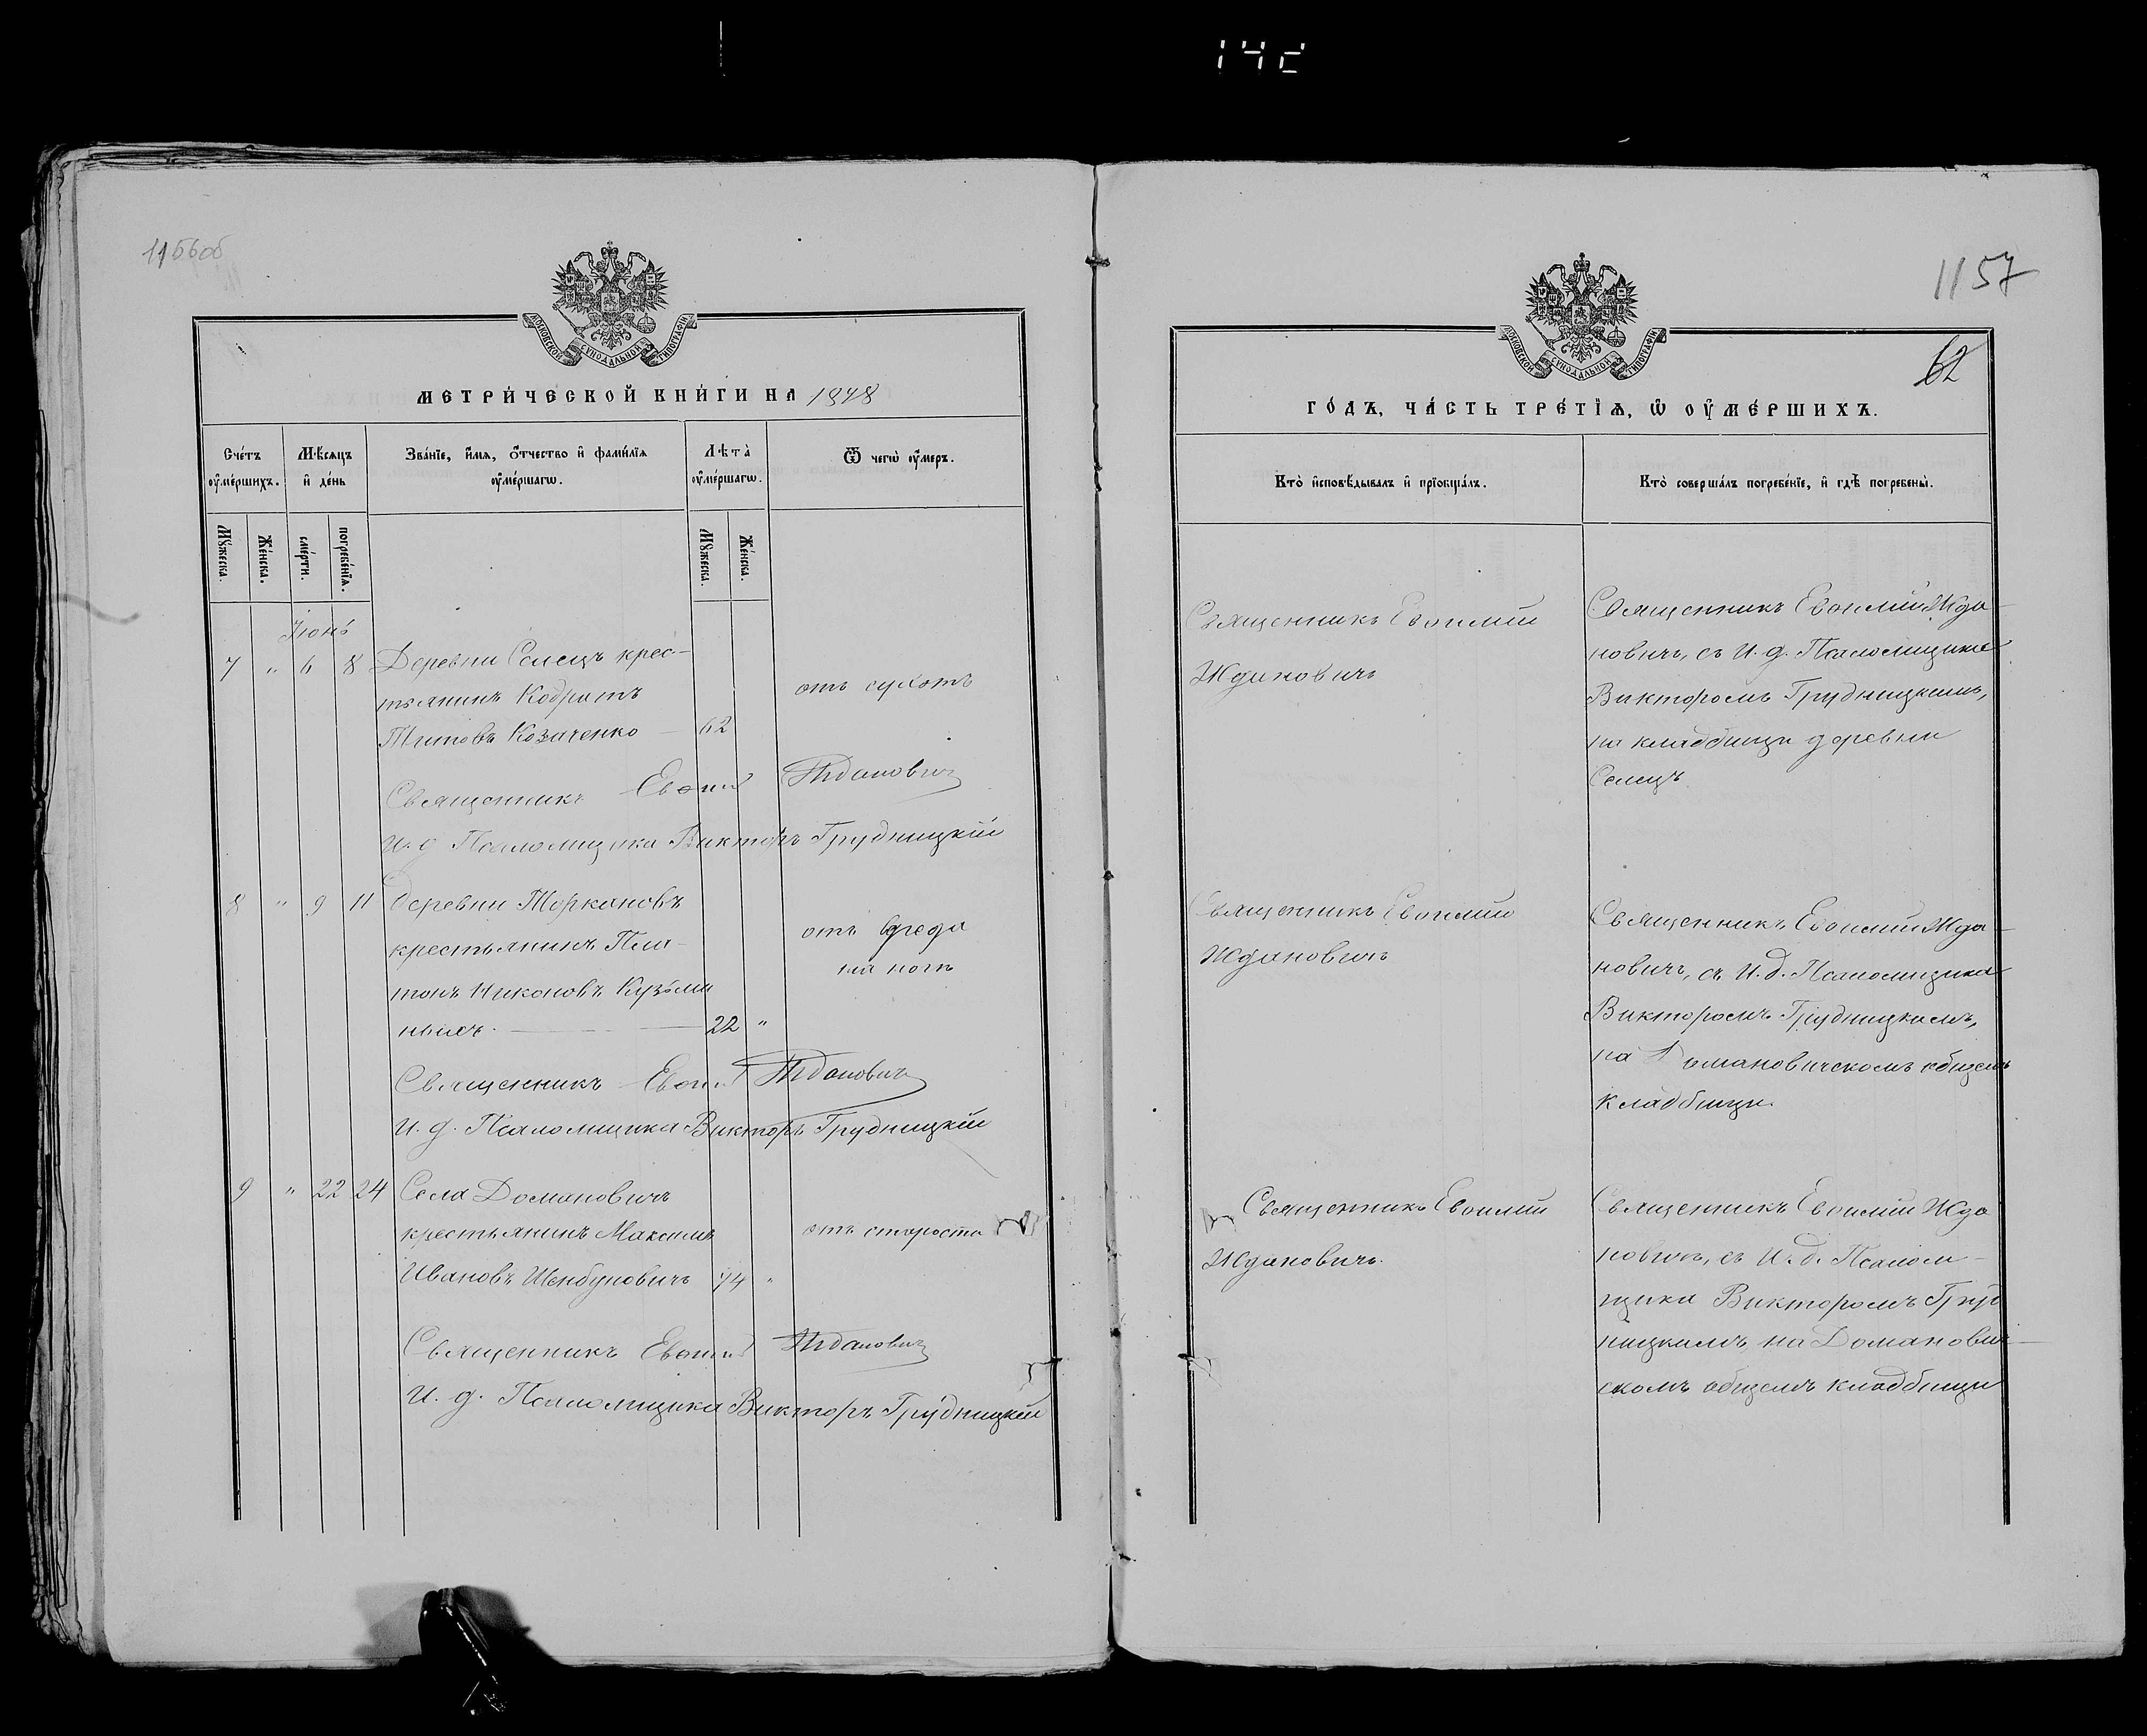 142
1156об
МОСКОВСКОЙ СѴНОДАЛЬНОЙ ТИПОГРАФІИ
МЕТРИ́ЧЕСКОЙ КНИ́ГИ НА 1898
Сче́тъ оу҆ме́ршихъ.
Мѣ́сяцъ и҆ де́нь
Зва́нїе, и҆́мѧ, ѻ҆́тчество и҆ фами́лїѧ оу҆ме́ршагѡ.
Лѣ́та оу҆ме́ршагѡ.
Ѿ чегѡ̀ оу҆́меръ.
Мꙋ́жеска.
Же́нска.
сме́рти.
погребе́нїѧ.
Мꙋ́жеска.
Же́нска.
Іюнь
7 " 6 8 Деревни Селецъ крес-
тьянинъ Кодратъ отъ сухотъ
Титовъ Козаченко — 62
Священникъ Евѳимій Ждановичъ
И. д. Псаломщика Викторъ Грудницкій
8 " 9 11 Деревни Торкановъ
крестьянинъ Пла- отъ вреда
тонъ Никоновъ Кузьми на ногѣ
ныхъ. — 22 "
Священникъ Евѳимій Ждановичъ
И. д. Псаломщика Викторъ Грудницкій
9 " 22 24 Села Домановичъ
крестьянинъ Максимъ отъ старости
Ивановъ 74 "
Священникъ Евѳимій Ждановичъ
И. д. Псаломщика Викторъ Грудницкій
1157
62
МОСКОВСКОЙ СѴНОДАЛЬНОЙ ТИПОГРАФІИ
ГО́ДЪ, ЧА́СТЬ ТРЕ́ТЇѦ, Ѡ҆ ОУ҆МЕ́РШИХЪ.
Кто̀ и҆сповѣ́дывалъ и҆ прїобща́лъ.
Кто̀ соверша́лъ погребе́нїе, и҆ гдѣ̀ погребены̀.
Священникъ Евѳимій
Ждановичъ
Священникъ Евѳимій Жда-
новичъ, съ И. д. Псаломщика
Викторомъ Грудницкимъ,
на кладбищи деревни
Селецъ
Священникъ Евѳимій
Ждановичъ
Священникъ Евѳимій Жда-
новичъ, съ И. д. Псаломщика
Викторомъ Грудницкимъ,
на Домановическомъ общемъ
кладбищи.
Священникъ Евѳимій
Ждановичъ.
Священникъ Евѳимій Жда
новичъ, съ И. д. Псалом-
щика Викторомъ Груд
ницкимъ на Доманович-
скомъ общемъ кладбищи